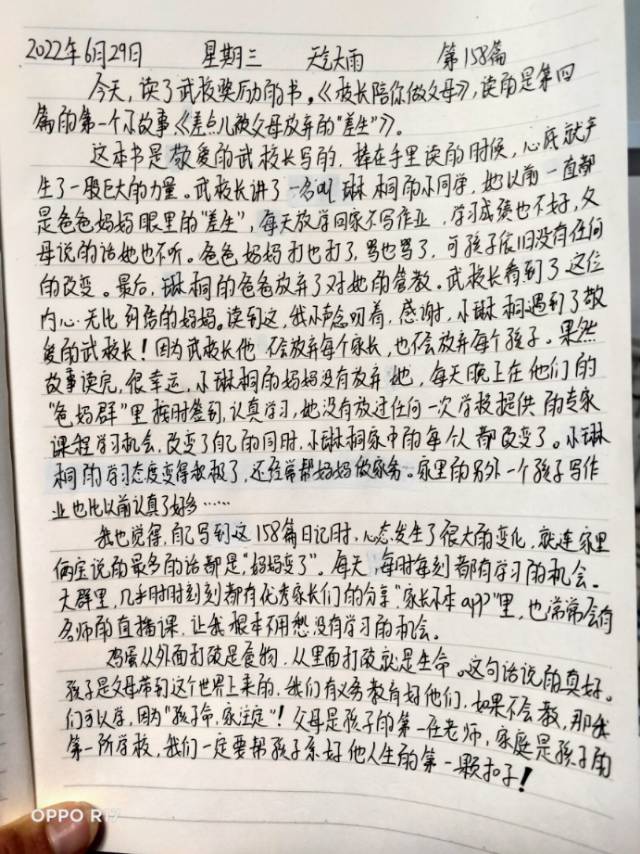 2022年6月29日 星期三 天气大雨 第158篇
今天,读了武校奖励的书。《校长陪你做父母》,读的是第四
篇的第一个小故事《差点儿被父母放弃的"差生"》。
这本书是敬爱的武校长写的,捧在手里读的时候,心底就产
生了一股巨大的力量。武校长讲了一名叫琳桐的小同学,她以前一直都
是爸爸妈妈眼里的"差生",每天放学回家不写作业,学习成绩也不好,父
母说的话她也不听。爸爸妈妈打也打了,骂也骂了,可孩子依旧没有任何
的改变。最后,琳桐的爸爸放弃了对她的管教。武校长看到了这位
内心无比到倍的妈妈。读到这,我小声念叨着,感谢,小琳桐遇到了敬
爱的武校长!因为武校长他不会放弃每个家长,也不会放弃每个孩子。果然
故事读完,很幸运,小琳桐的妈妈没有放弃她,每天晚上在他们的
"爸妈群"里按时签到,认真学习,她没有放过任何一次学校提供的专家
课程学习机会,改变了自己的同时,小琳桐家中的每个人都改变了。小琳
桐的学习态度变得积极了,还经常帮妈妈做家务。家里的另外一个孩子写作
业也比以前认真了好多……
我也觉得,自己写到这158篇日记时,心态发生了很大的变化,就连家里
俩宝说的最多的话都是,"妈妈变了"。每天,每时每刻都有学习的机会。
大群里,几乎时时刻刻都有优秀家长们的分享"家长本app"里,也常常会有
名师的直播课,让我根本不用愁没有学习的机会。
鸡蛋从外面打破是食物,从里面打破就是生命。这句话说的真好。
孩子是父母带到这个世界上来的,我们有义务教育好他们,如果不会教,那我
们可以学,因为"孩子命,家注定"!父母是孩子的第一任老师,家庭是孩子的
第一所学校,我们一定要帮孩子系好他人生的第一颗扣子!
OPPO R17